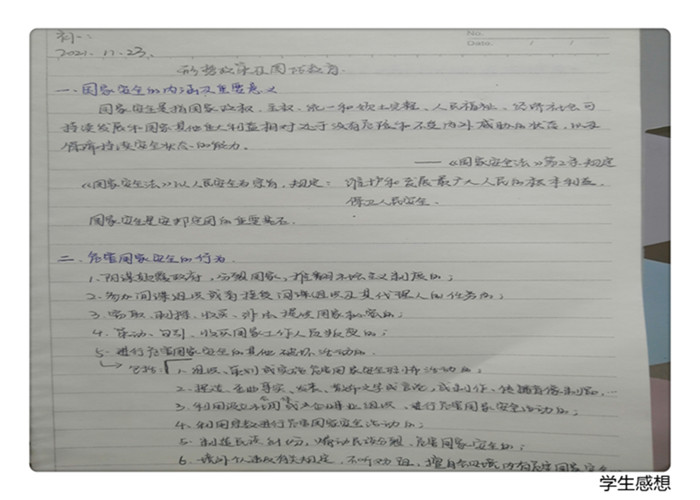 周一:
2021.11.23.
No.
Date. / /
形势政策在周恩教育
一、国家安全的内涵及重要意义
国家安全是指国家政权、主权、统一和领土完整、人民福祉、经济社会可
持续发展和国家其他重大利益相对处于没有危险和不受内外威胁的状态,以及
保障持续安全状态的能力。
——《国家安全法》第2条规定
《国家安全法》以人民安全为宗旨,规定:维护和发展最广大人民的根本利益,
保卫人民安全。
国家安全是安邦定国的重要基石.
二、危害国家安全的行为
1.阴谋颠覆政府,分裂国家,推翻社会主义制度的;
2.参加间谍组织或者接受间谍组织及其代理人的任务的;
3.窃取、刺探、收买、非法提供国家秘密的;
4.策动、勾引、收买国家工作人员叛变的;
5.进行危害国家安全的其他破坏活动的.
包括:1.组织、策划或实施危害国家安全的恐怖活动的;
2.捏造、歪曲事实、发表、散布文字或言论,或制作、传播音像制品,
3.利用设立社会团体或企业事业组织,进行危害国家安全活动的;
4.利用宗教进行危害国家安全活动的;
5.制造民族纠纷,煽动民族分裂,危害国家安全的;
6.境外个人违反有关规定,不听劝阻,擅自会见境内有危害国家安全
学生感想